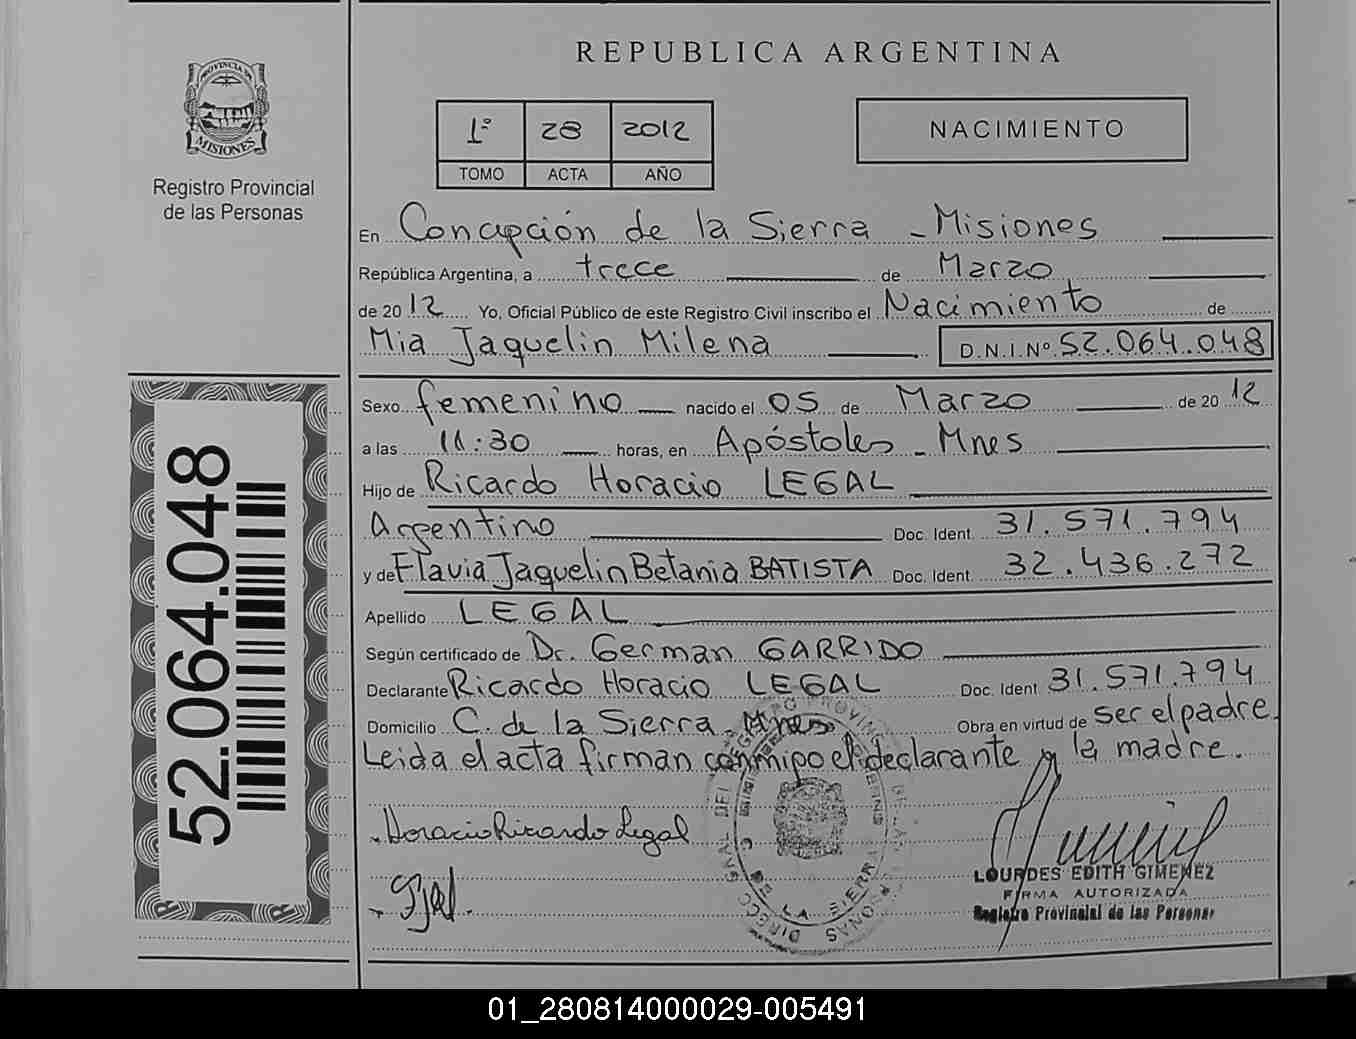 REPUBLICA ARGENTINA
PROVINCIA DE
MISIONES
Registro Provincial
de las Personas
1º 28 2012
TOMO ACTA AÑO
NACIMIENTO
En Concepción de la Sierra - Misiones
República Argentina, a trece de Marzo
de 2012 Yo, Oficial Público de este Registro Civil inscribo el Nacimiento de
Mia Jaquelin Milena D.N.I.Nº 52.064.048
Sexo femenino nacido el 05 de Marzo de 2012
a las 11:30 horas, en Apóstoles - Mnes
Hijo de Ricardo Horacio LEGAL
Argentino Doc. Ident. 31.571.794
y de Flavia Jaquelin Betania BATISTA Doc. Ident. 32.436.272
Apellido LEGAL
Según certificado de Dr. German GARRIDO
Declarante Ricardo Horacio LEGAL Doc. Ident. 31.571.794
Domicilio C. de la Sierra - Mnes Obra en virtud de ser el padre.
Leida el acta firman conmigo el declarante y la madre.
Horacio Ricardo Legal
LOURDES EDITH GIMENEZ
FIRMA AUTORIZADA
Registro Provincial de las Personas
52.064.048
01_280814000029-005491